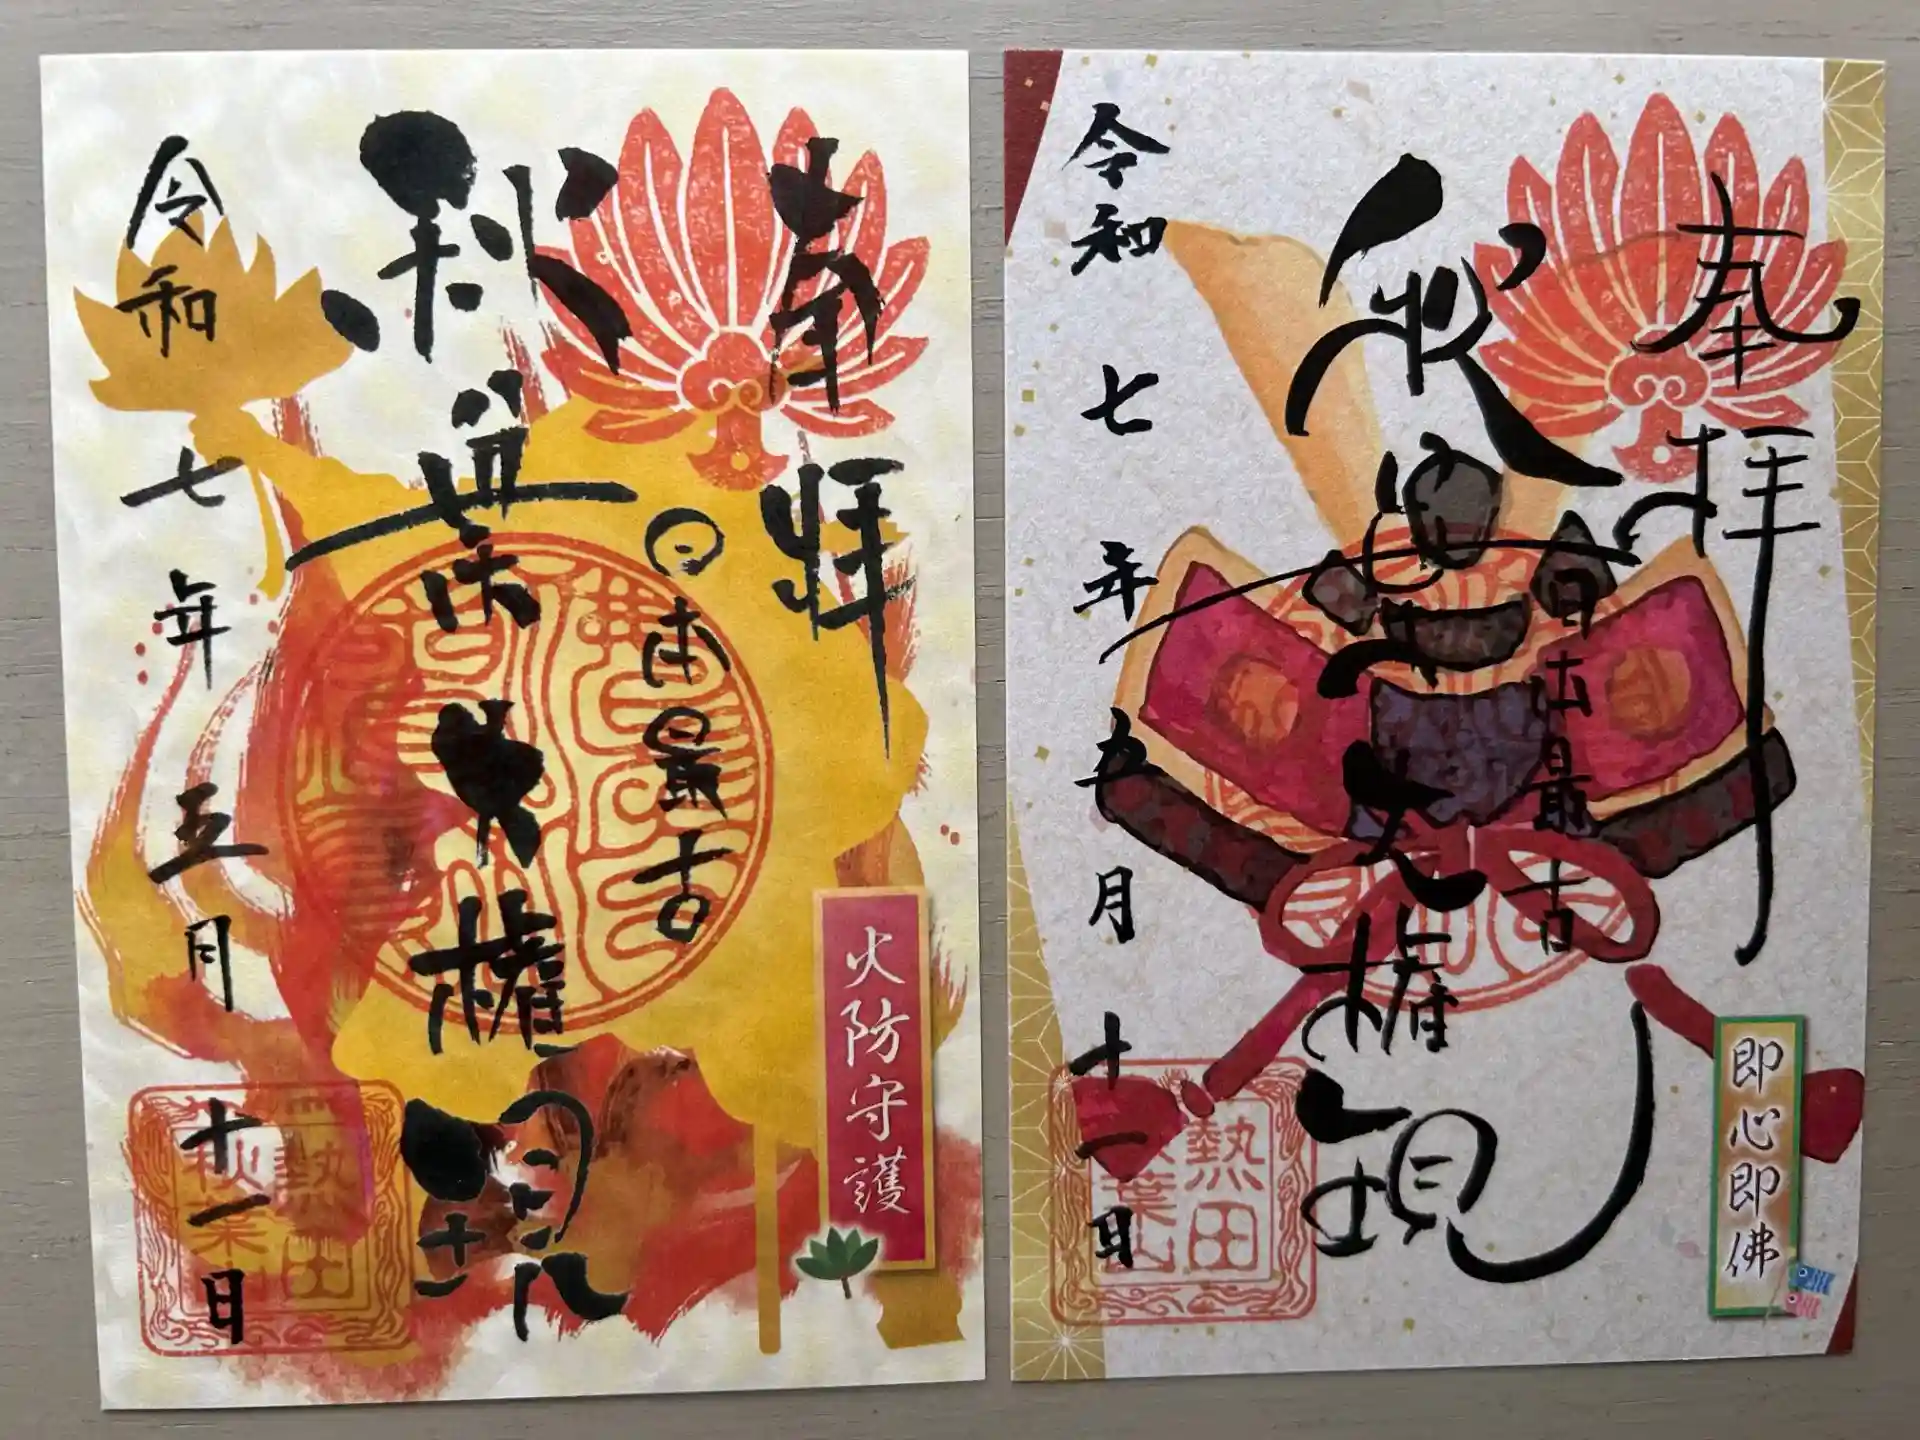 奉拝
日本最古
秋葉大権現
令和七年五月十一日
火防守護
熱田
秋葉山
奉拝
日本最古
秋葉大権現
令和七年五月十一日
即心即佛
熱田
秋葉山